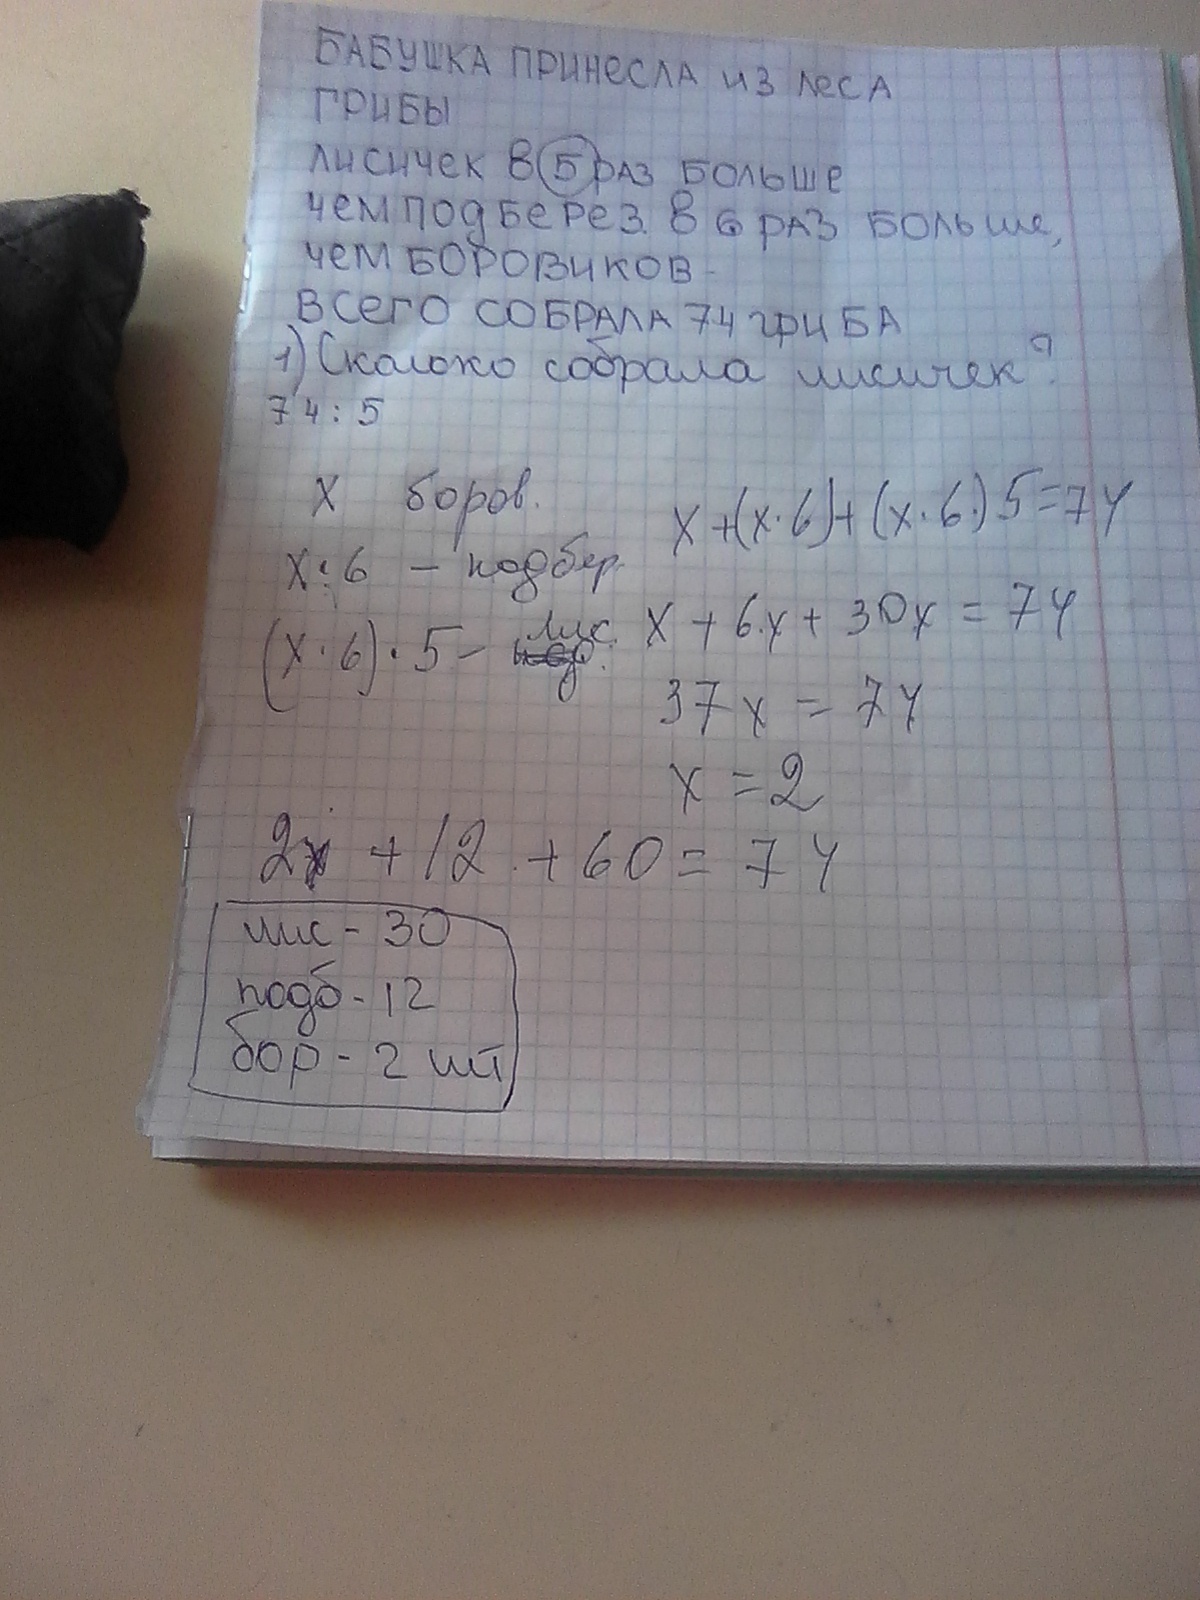 БАБУШКА ПРИНЕСЛА ИЗ ЛеСА
ГРИБЫ
ЛИСИЧЕК В 5 РАЗ БОЛЬШЕ
ЧЕМ ПОДБЕРЕЗ. В 6 РАЗ БОЛЬШЕ,
ЧЕМ БОРОВИКОВ -
ВСЕГО СОБРАЛА 74 ГРИБА
1) Сколько собрала лисичек?
74 : 5
X боров.
X · 6 - подбер.
(X · 6) · 5 - лис.
X + (X · 6) + (X · 6) 5 = 74
X + 6.X + 30X = 74
37X = 74
X = 2
2 + 12 + 60 = 74
лис - 30
подб - 12
бор - 2 шт